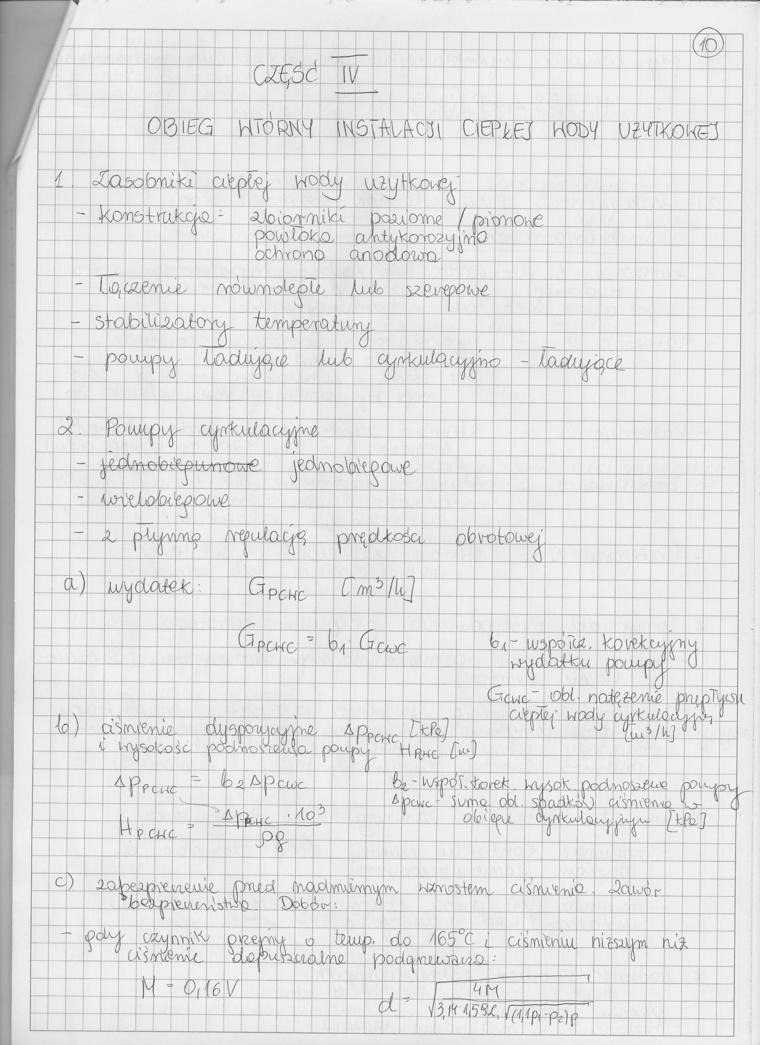 10
CZĘŚĆ IV
OBIEG WTÓRNY INSTALACJI CIEPŁEJ WODY UŻYTKOWEJ
1. Zasobniki ciepłej wody użytkowej
- konstrukcja: zbiorniki poziome / pionowe
powłoka antykorozyjna
ochrona anodowa
- łączenie równoległe lub szeregowe
- stabilizatory temperatury
- pompy ładujące lub cyrkulacyjno - ładujące
2. Pompy cyrkulacyjne
- jednobiegunowe jednobiegowe
- wielobiegowe
- z płynną regulacją prędkości obrotowej
a) wydatek: GPCWC [m³/h]
GPCWC = b1 GCWC
b1 - współcz. korekcyjny
wydatku pompy
GCWC - obl. natężenie przepływu
ciepłej wody cyrkulacyjnej
[m³/h]
b) ciśnienie dyspozycyjne ΔpPCWC [kPa]
i wysokość podnoszenia pompy HPCWC [m]
ΔpPCWC = b2 ΔpCWC
b2 - współ. korek. wysok. podnoszenia pompy
ΔpCWC - suma obl. spadków ciśnienia w
obiegu cyrkulacyjnym [kPa]
HPCWC = ΔpPCWC · 10³ / ρg
c) zabezpieczenie przed nadmiernym wzrostem ciśnienia. Zawór
bezpieczeństwa. Dobór:
- gdy czynnik grzejny o temp. do 165°C i ciśnieniu niższym niż
ciśnienie dopuszczalne podgrzewacza:
M = 0,16 V
d = √(4M / 3,14 · 1,59 √(1,1p1-p2)ρ)